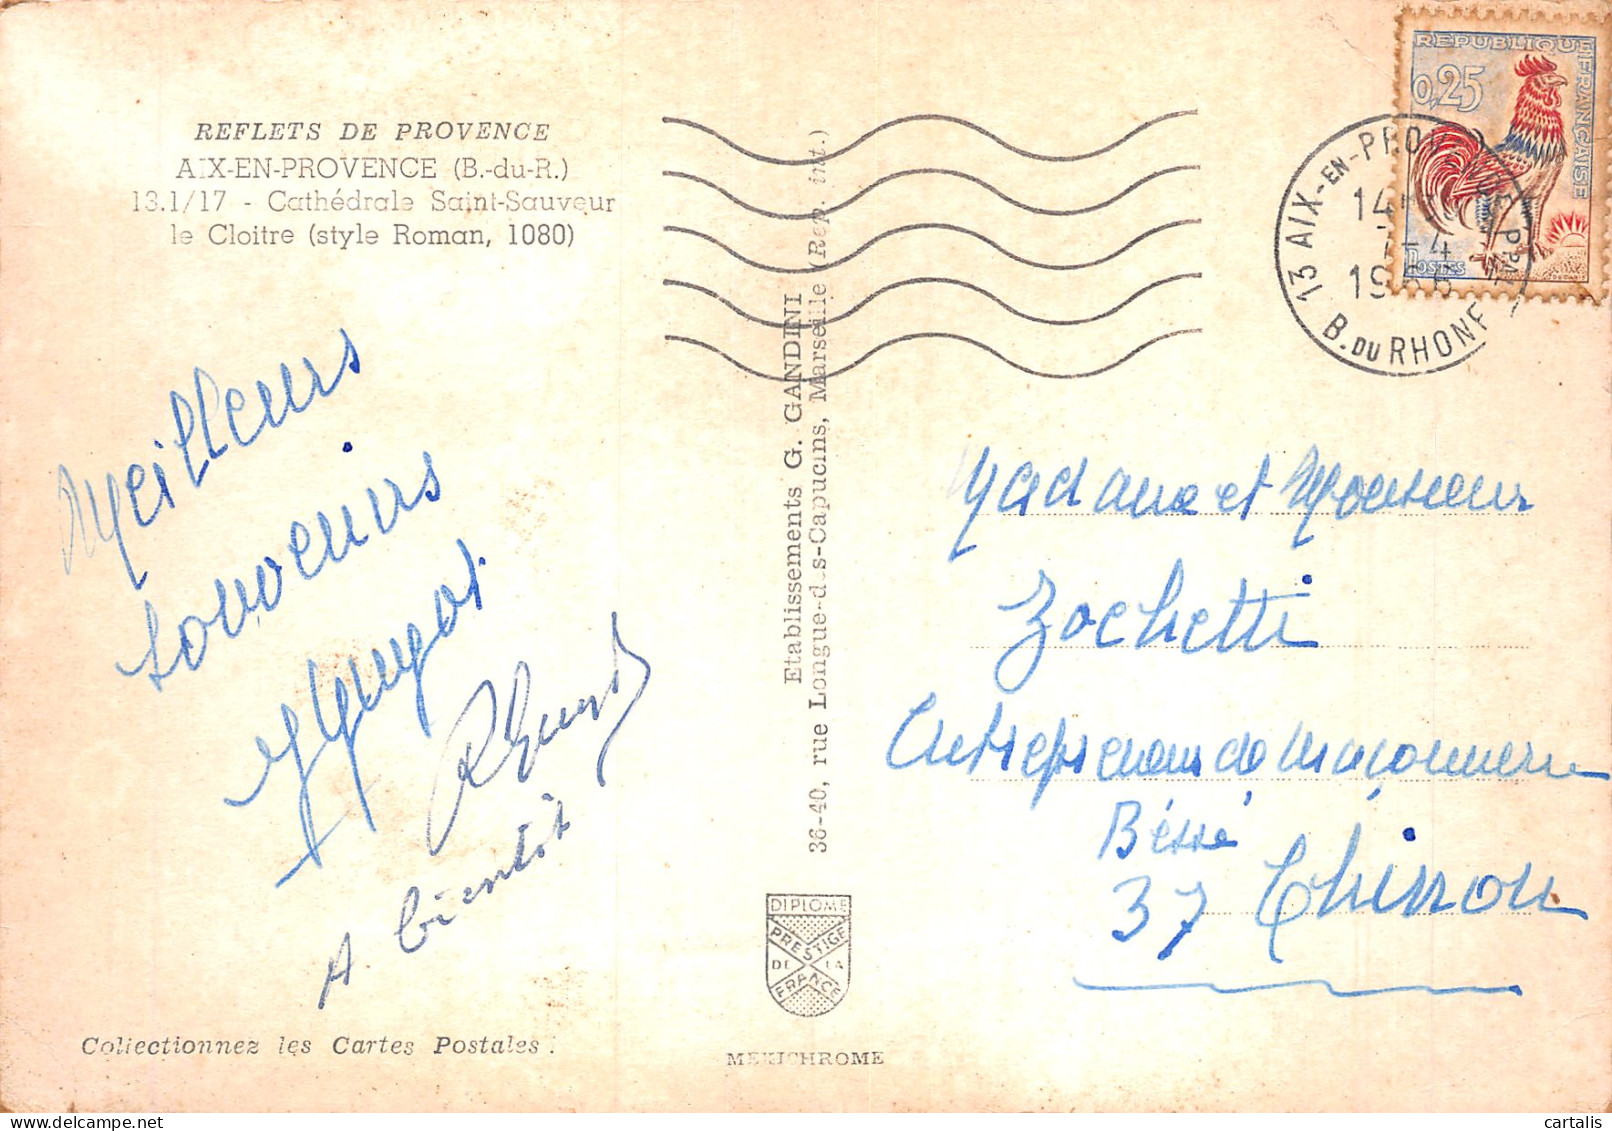 REFLETS DE PROVENCE
AIX-EN-PROVENCE (B.-du-R.)
13.1/17 - Cathédrale Saint-Sauveur
le Cloitre (style Roman, 1080)
Meilleurs
souvenirs
A bientôt
Collectionnez les Cartes Postales :
Etablissements G. GANDINI
36-40, rue Longue-des-Capucins, Marseille (Rep. int.)
DIPLOME
PRESTIGE
DE LA
FRANCE
MEXICHROME
REPUBLIQUE FRANÇAISE
0,25
POSTES
13 AIX-EN-PROV
14
7-4
1966
B. DU RHONE
Madame et Monsieur
Zochetti
Entrepreneur de maçonnerie
Béssé
37 Chinon
cartalis